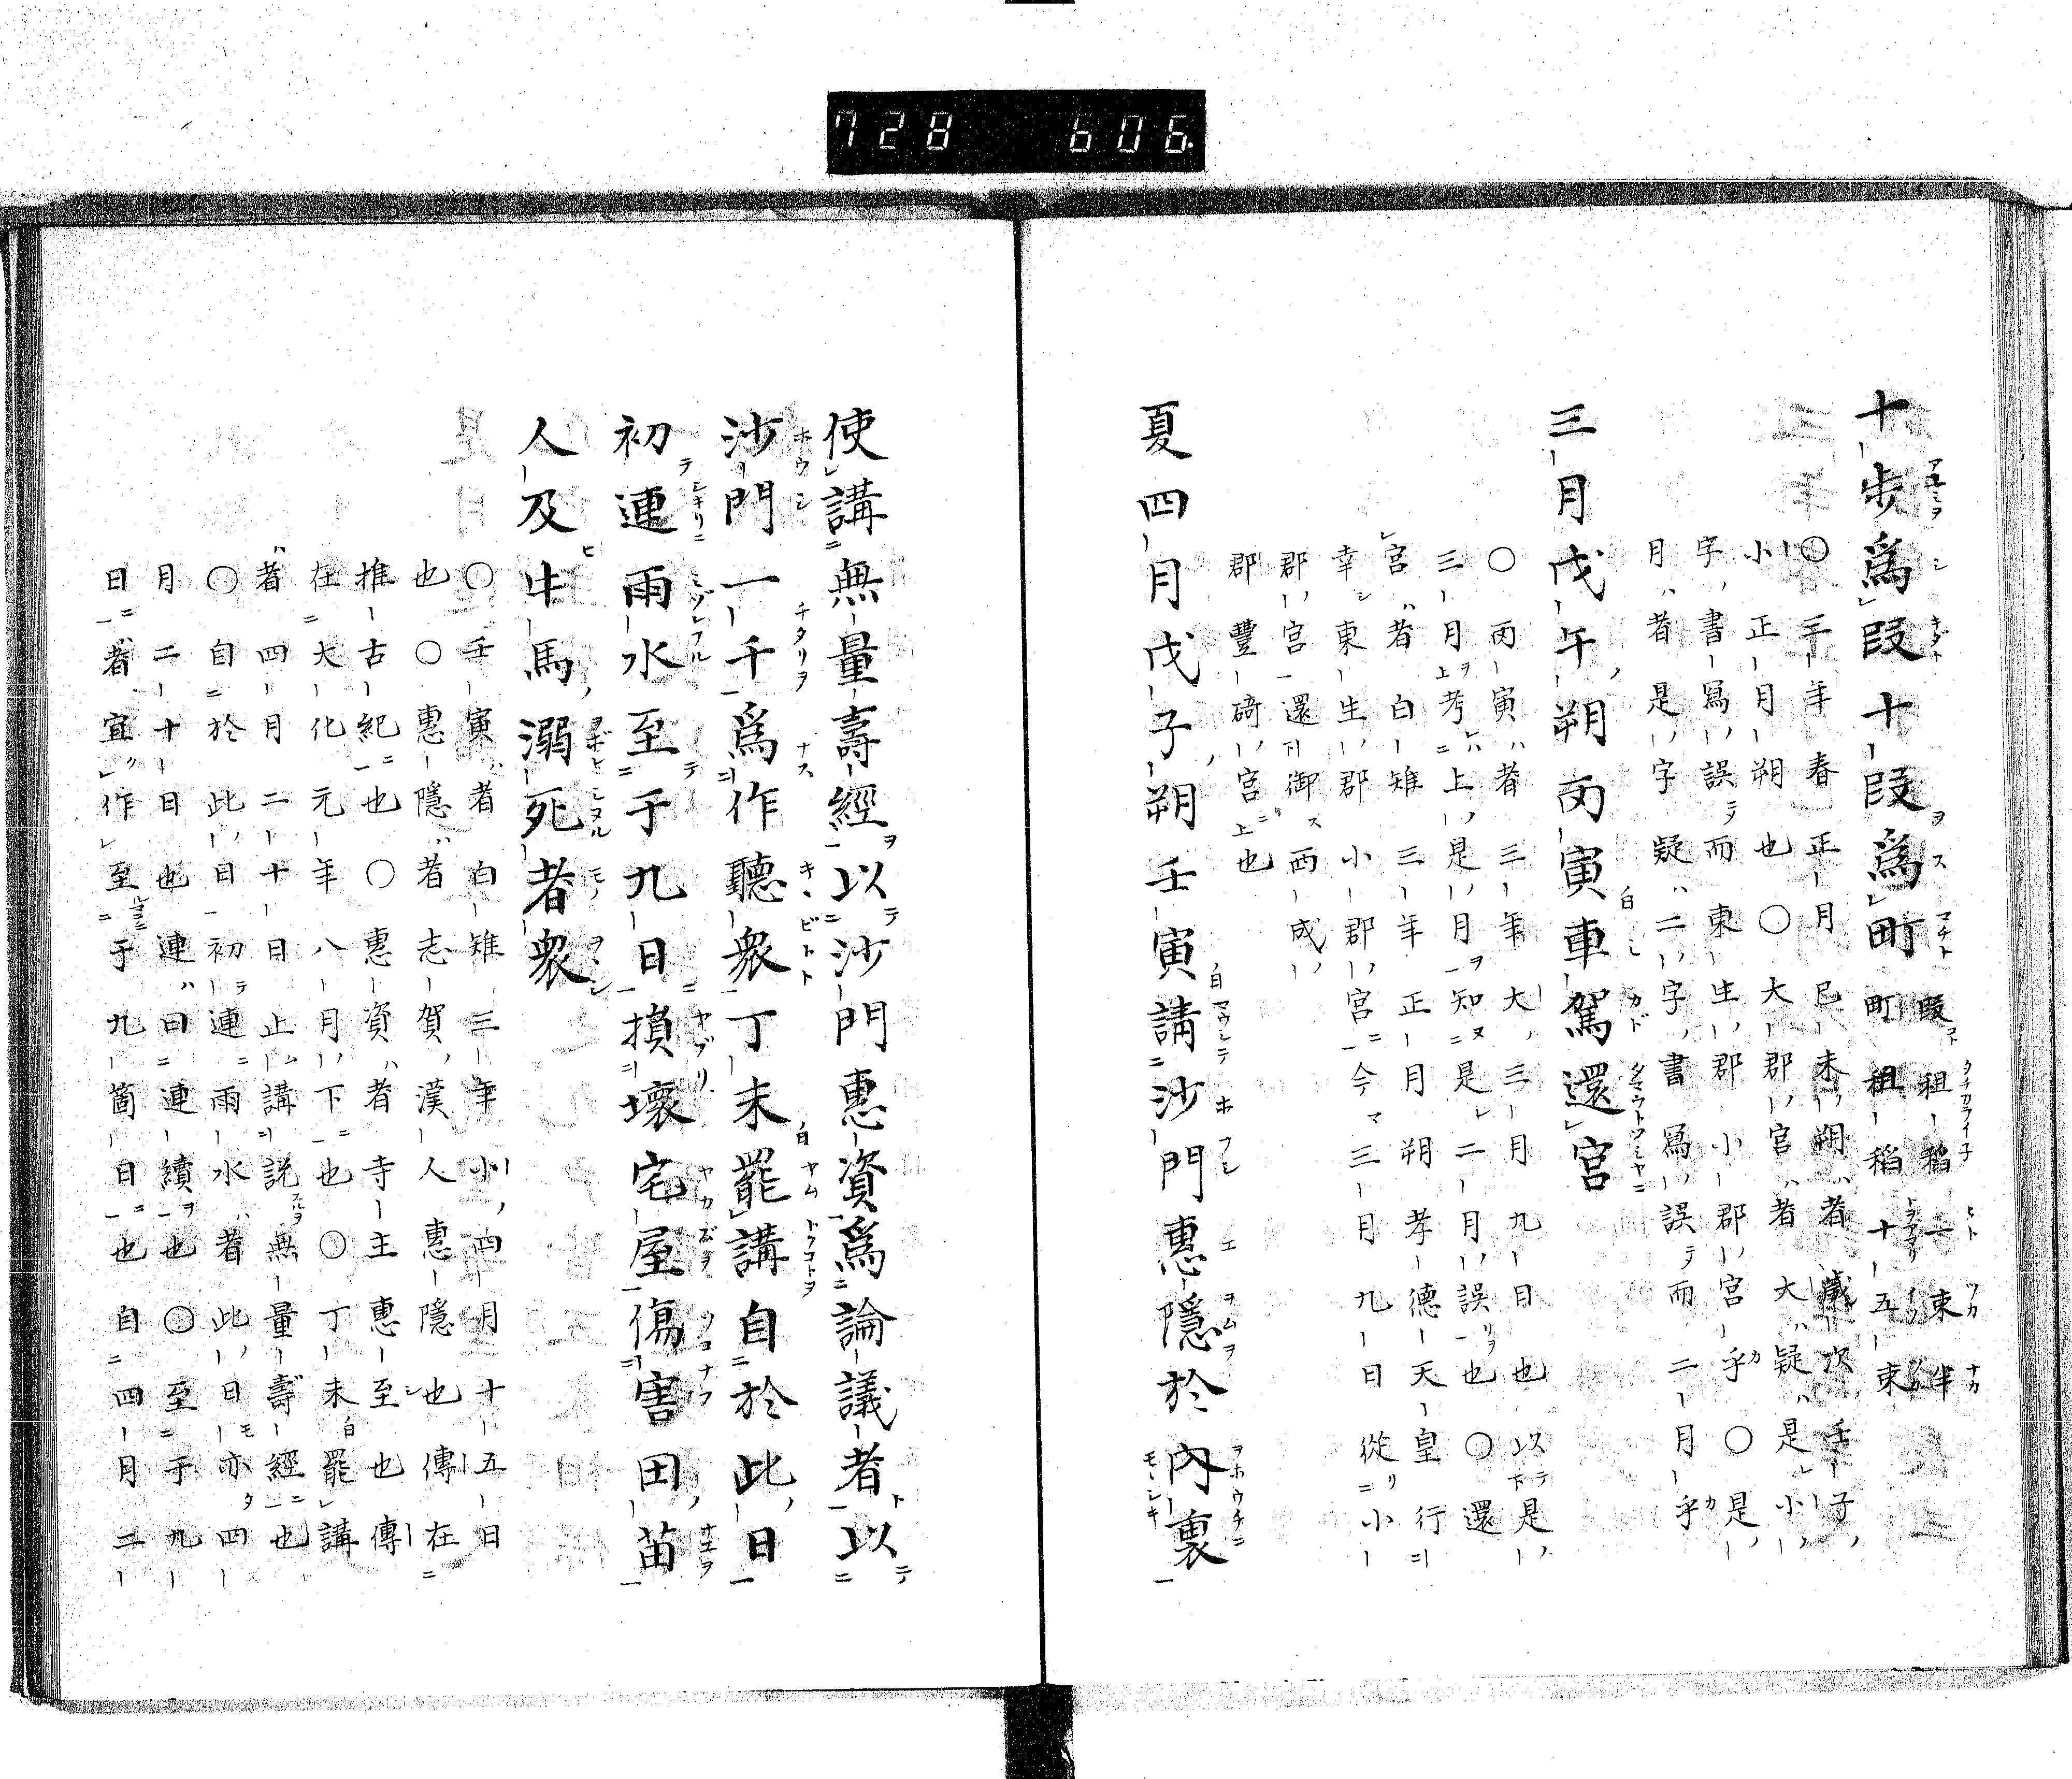 728 606.
十歩爲段十段爲町段租稻一束半
町租稻十五束
〇三年春正月己未朔者歳次壬子
小正月朔也〇大郡宮者大疑是小
字書寫誤而東生郡小郡宮乎〇是
月者是字疑二字書寫誤而二月乎
三月戊午朔丙寅車駕還宮
〇丙寅者三年大三月九日也以是
三月考上是月知是二月誤也〇還
宮者白雉三年正月朔孝德天皇行
幸東生郡小郡宮今三月九日從小
郡宮還御西成
郡豐碕宮也
夏四月戊子朔壬寅請沙門惠隱於內裏
使講無量壽經以沙門惠資爲論議者以
沙門一千爲作聽衆丁未罷講自於此日
初連雨水至于九日損壞宅屋傷害田苗
人及牛馬溺死者衆
〇壬寅者白雉三年小四月十五日
也〇惠隱者志賀漢人惠隱也傳在
推古紀也〇惠資者寺主惠至也傳
在大化元年八月下也〇丁未罷講
者四月二十日止講說無量壽經也
〇自於此日初連雨水者此日亦四
月二十日也連曰連續也〇至于九
日者宜作至于九箇日也自四月二